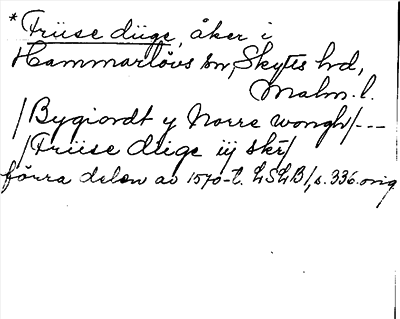 *Früse düge, åker i
Hammarlövs sn, Skytts hd,
Malm. l.
/Bygiordt y Norre wongh/---
/Früse düge iij skr/
förra delen av 1570-t. LSLB/, s. 336. orig